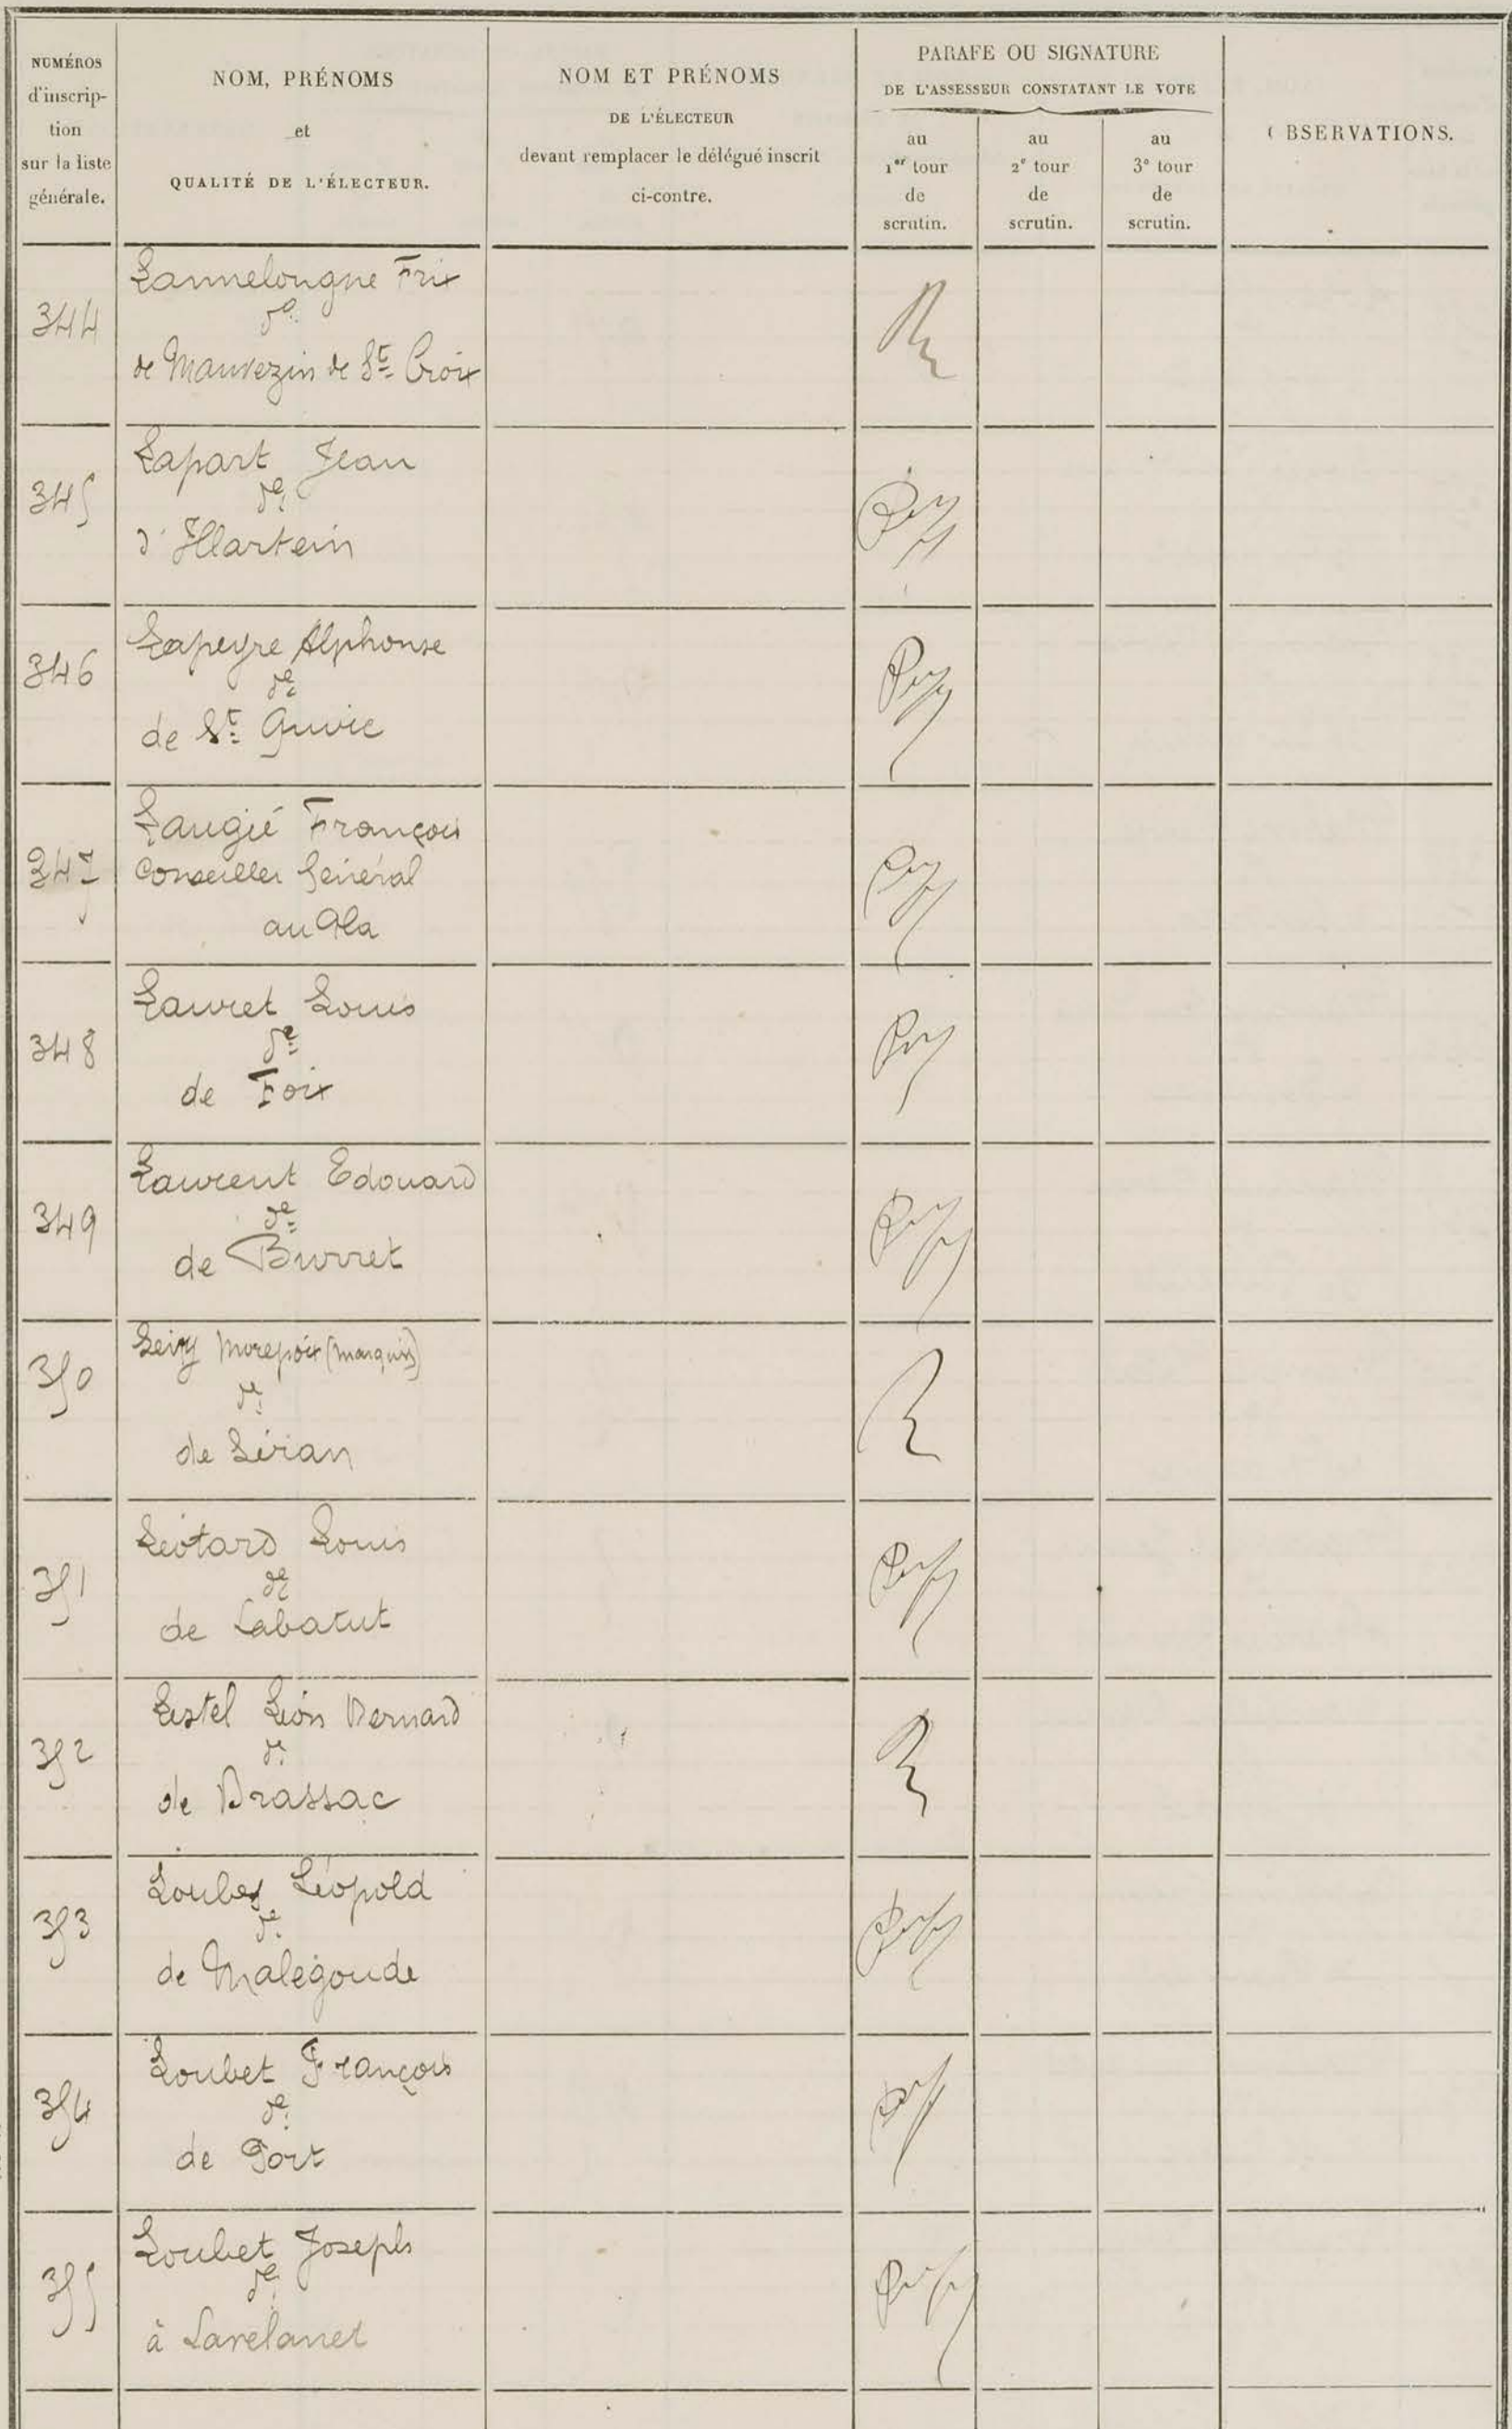 NUMÉROS
d'inscrip-
tion
sur la liste
générale.
NOM, PRÉNOMS
et
QUALITÉ DE L'ÉLECTEUR.
NOM ET PRÉNOMS
DE L'ÉLECTEUR
devant remplacer le délégué inscrit
ci-contre.
PARAFE OU SIGNATURE
DE L'ASSESSEUR CONSTATANT LE VOTE
au
1er tour
de
scrutin.
au
2e tour
de
scrutin.
au
3e tour
de
scrutin.
BSERVATIONS.
344
Lannelongue Frix
de Mauvezin de Ste Croix
345
Lapart Jean
d'Illartein
346
Lapeyre Alphonse
de St
347
Laugié François
Conseiller Général
au
348
Lauret Louis
de Foix
349
Laurent Edouard
de Burret
350
Mirepoix (marquis)
de Léran
351
Léotard Louis
de Labatut
352
Lestel Léon Bernard
de Brassac
353
Loubes Léopold
de Malegoude
354
Loubet François
de Port
355
Loubet Joseph
à Lavelanet